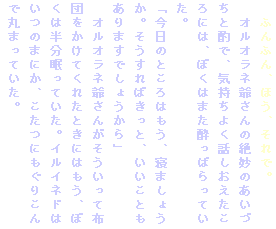 オルオラネ爺さんの絶妙のあいづ
ちと酌で、気持ちよく話しおえたこ
ろには、ぼくはまた酔っぱらってい
た。
「今日のところはもう、寝ましょう
か。そうすればきっと、いいことも
ありますでしょうから」
オルオラネ爺さんがそういって布
団をかけてくれたときにはもう、ぼ
くは半分眠っていた。イルイネドは
いつのまにか、こたつにもぐりこん
で丸まっていた。